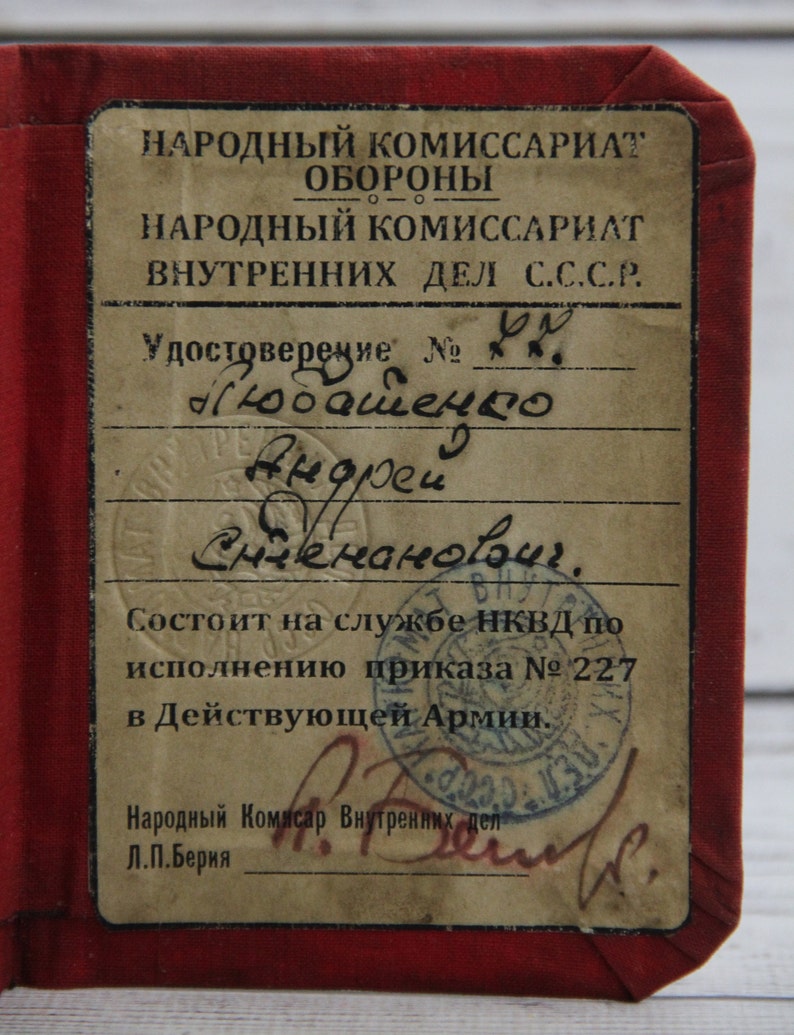 НАРОДНЫЙ КОМИССАРИАТ
ОБОРОНЫ
НАРОДНЫЙ КОМИССАРИАТ
ВНУТРЕННИХ ДЕЛ С.С.С.Р.
Удостоверение № 22.
Любашенко
Андрей
Степанович.
Состоит на службе НКВД по
исполнению приказа № 227
в Действующей Армии.
НАРКОМАТ ВНУТРЕННИХ ДЕЛ СССР
Народный Комисар Внутренних дел
Л.П.Берия